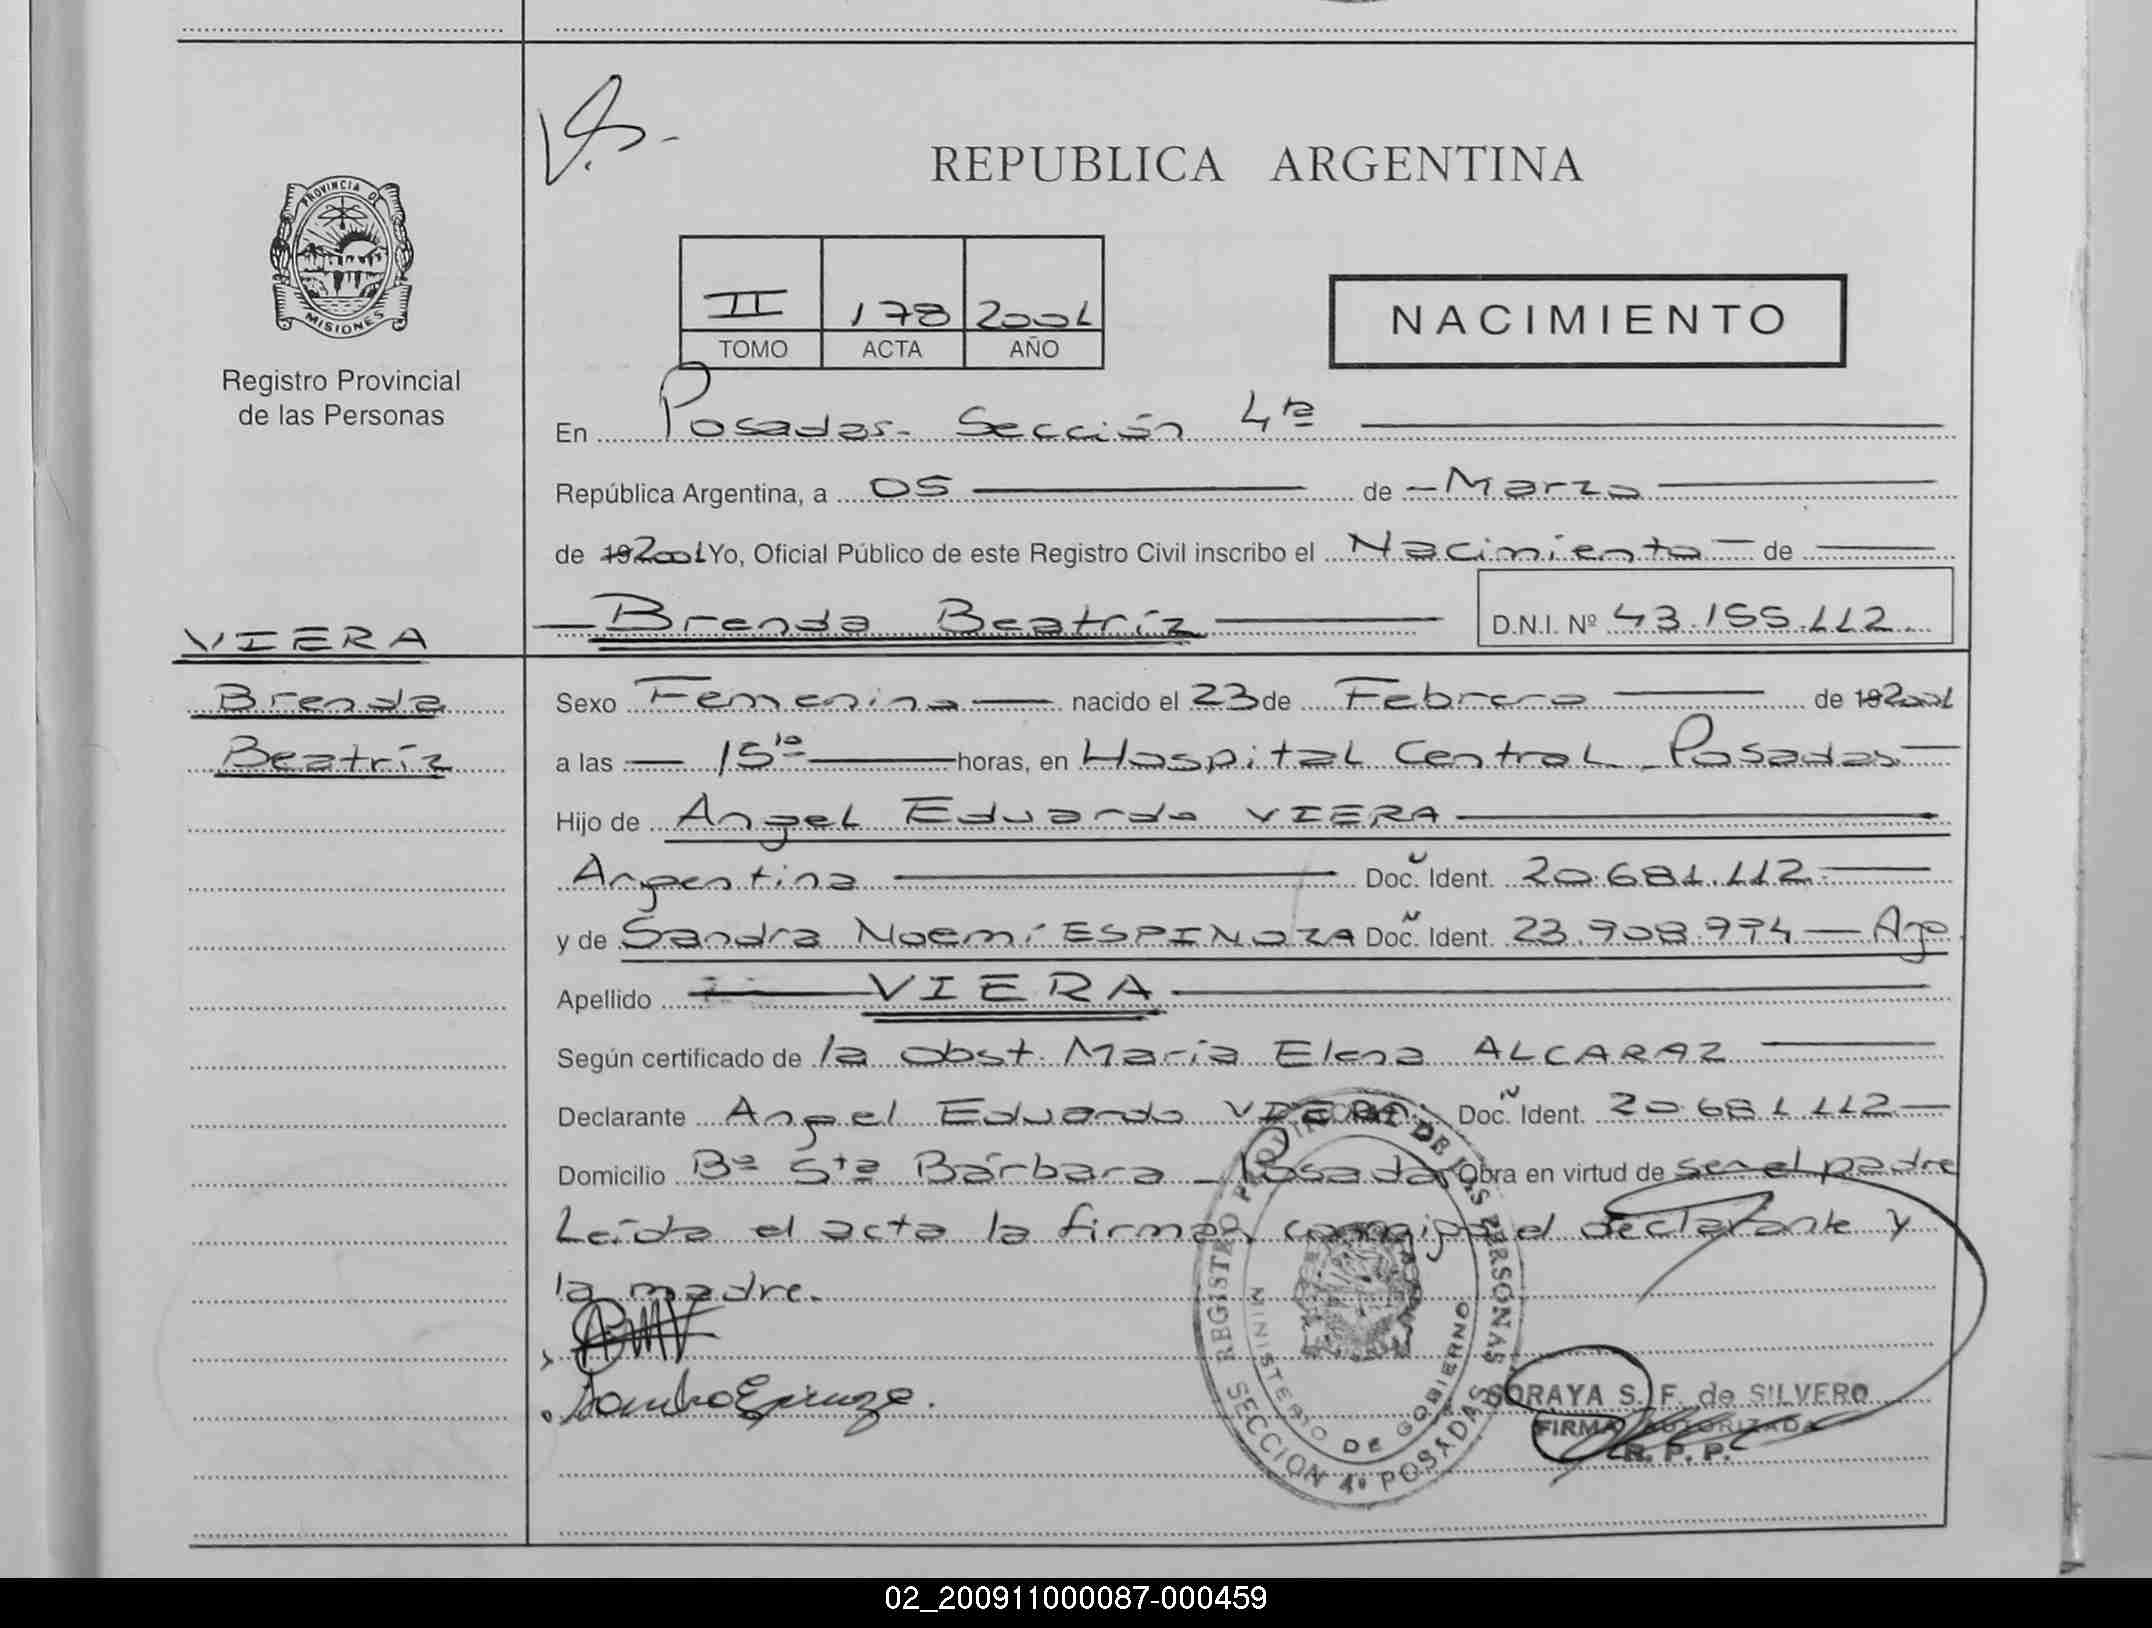 REPUBLICA ARGENTINA
PROVINCIA DE
MISIONES
Registro Provincial
de las Personas
II 178 2001
TOMO ACTA AÑO
NACIMIENTO
En Posadas - Sección 4ta
República Argentina, a 05 de - Marzo
de 192001 Yo, Oficial Público de este Registro Civil inscribo el Nacimiento - de
Brenda Beatríz D.N.I. Nº 43.155.112.
VIERA
Brenda
Beatríz
Sexo Femenino nacido el 23 de Febrero de 192001
a las 15 10 horas, en Hospital Central - Posadas
Hijo de Angel Eduardo VIERA
Argentino Doc. Ident. 20.681.112.
y de Sandra Noemí ESPINOZA Doc. Ident. 23.908.974 - Arg
Apellido VIERA
Según certificado de la obst. María Elena ALCARAZ
Declarante Angel Eduardo VIERA Doc. Ident. 20.681.112
Domicilio Bº Sta Bárbara - Posadas Obra en virtud de ser el padre
Leída el acta la firman conmigo el declarante y
la madre.
REGISTRO PROVINCIAL DE LAS PERSONAS
MINISTERIO DE GOBIERNO
SECCION 4ª POSADAS
SORAYA S. F. de SILVERO
FIRMA AUTORIZADA
R. P. P.
02_200911000087-000459